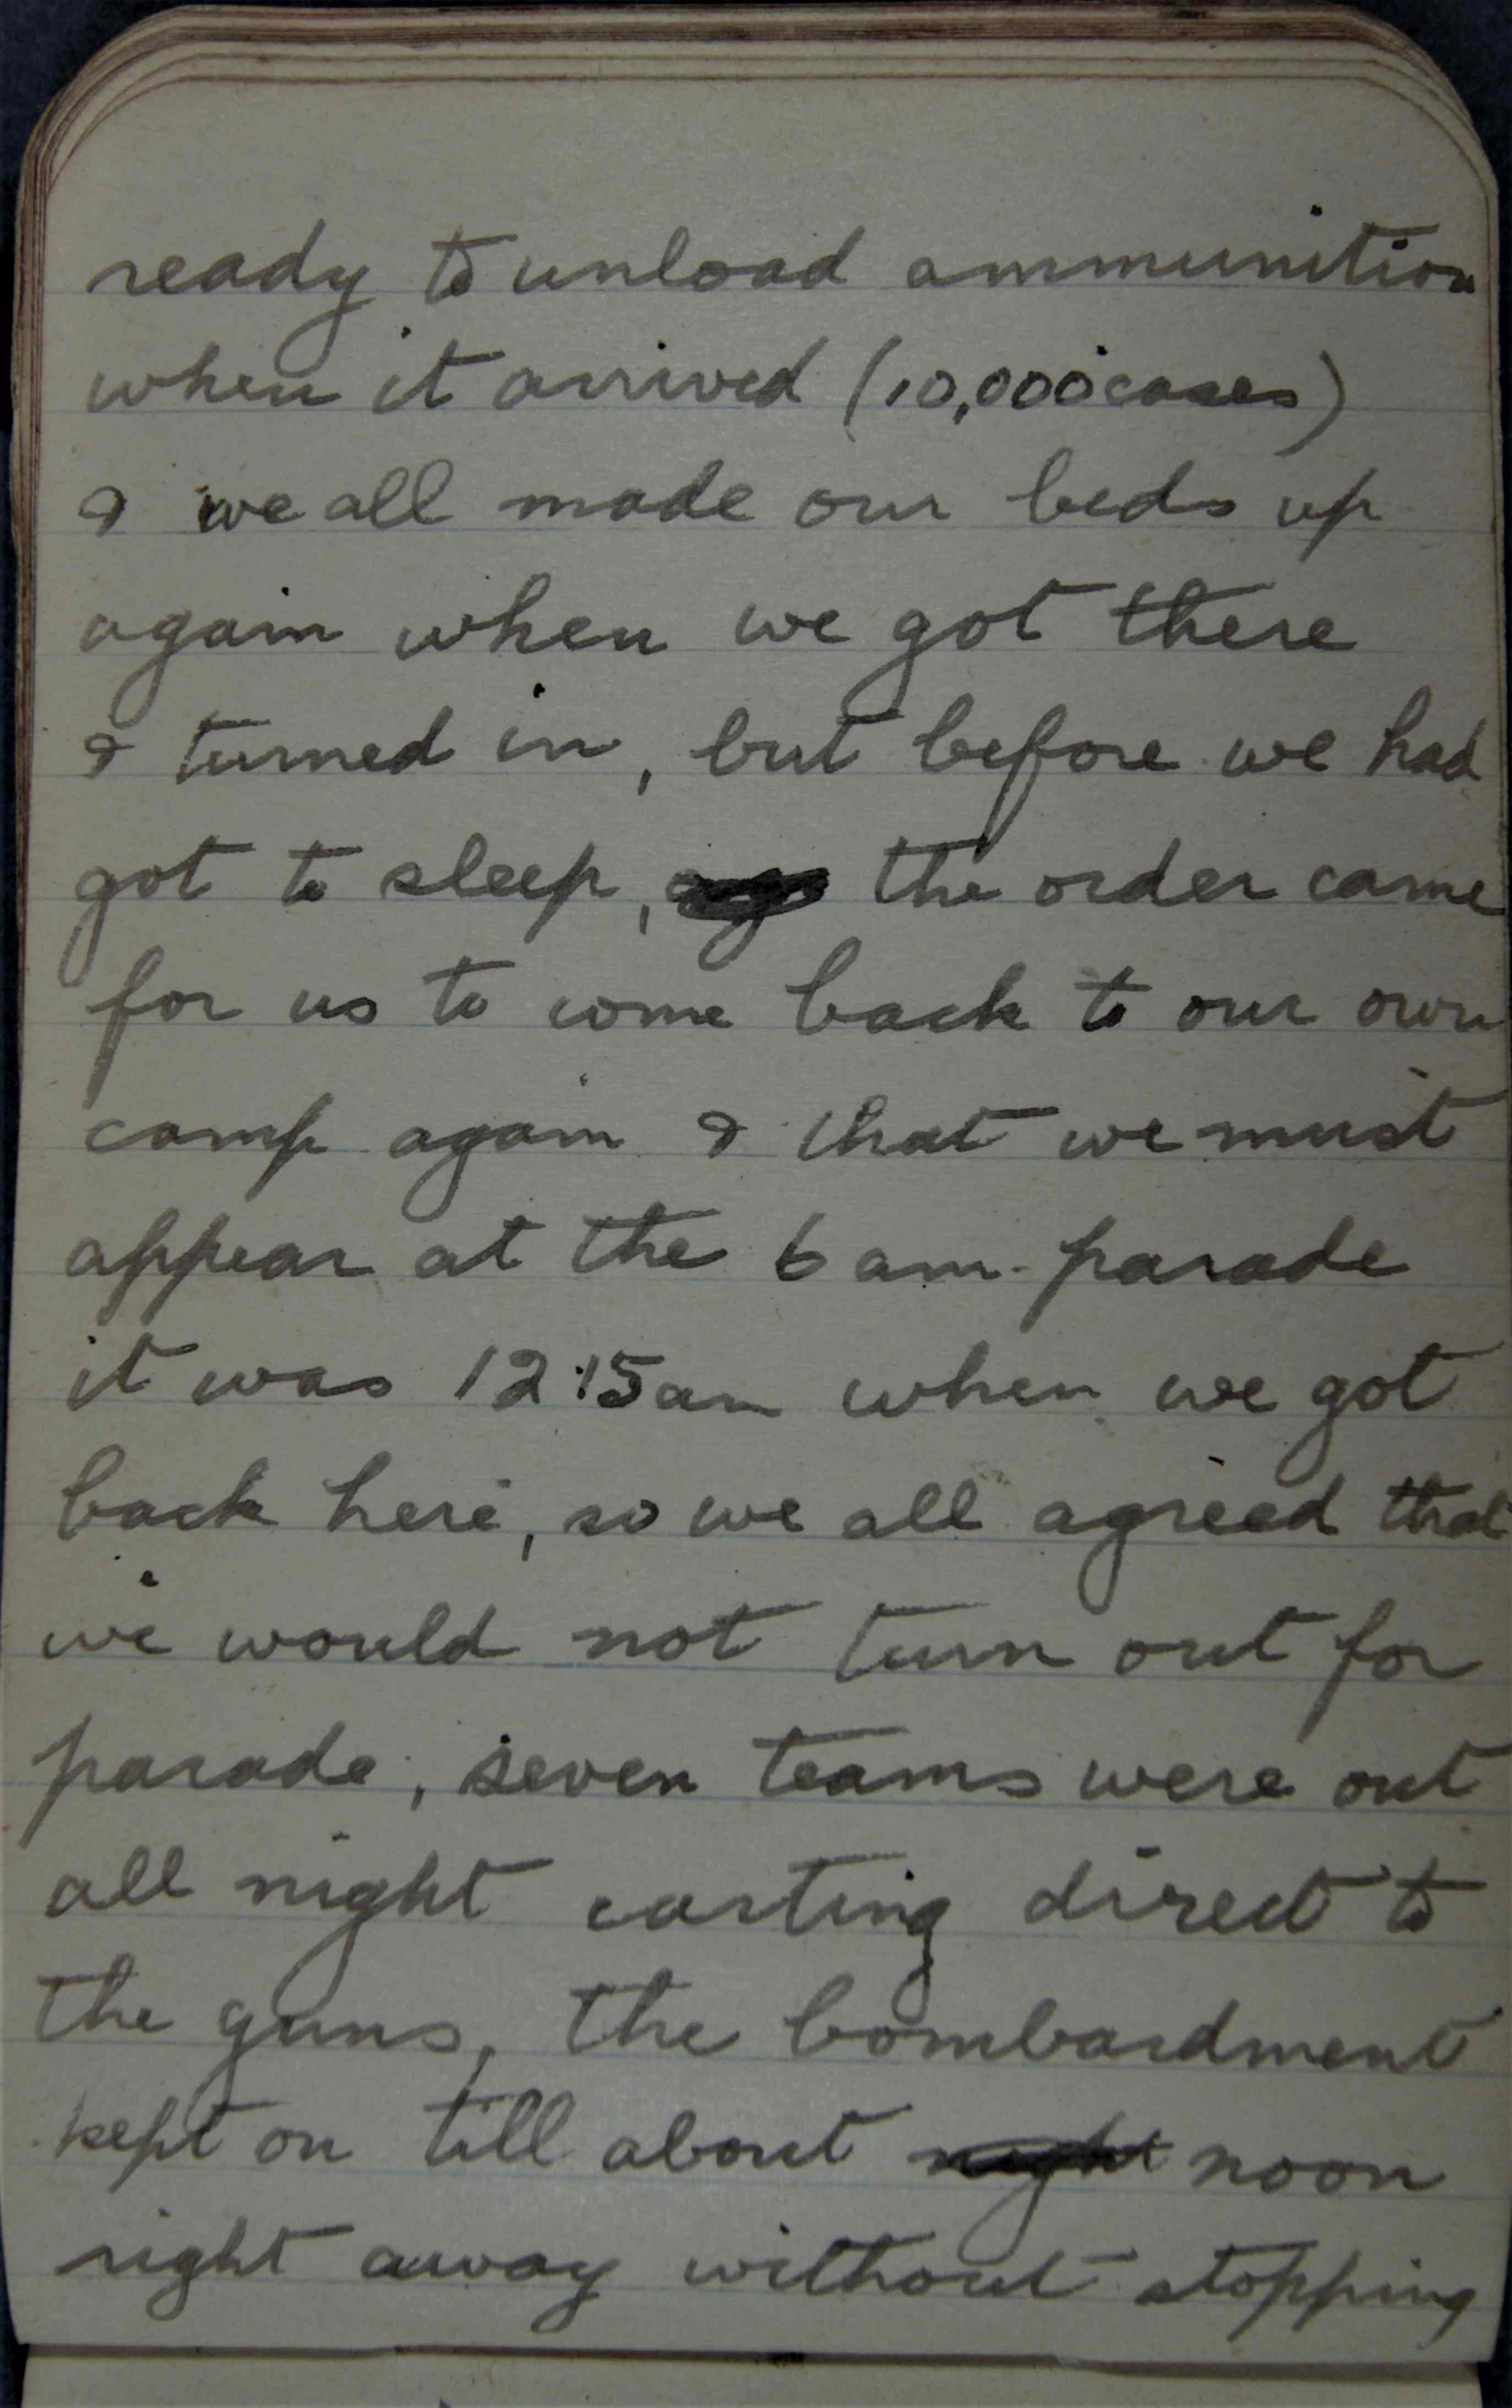 ready to unload ammunition
when it arrived (10,000 cases)
& we all made our beds up
again when we got there
& turned in, but before we had
got to sleep, the order came
for us to come back to our own
camp again & that we must
appear at the 6 am. parade
it was 12:15 am when we got
back here, so we all agreed that
we would not turn out for
parade, seven teams were out
all night carting direct to
the guns, the bombardment
kept on till about night noon
right away without stopping